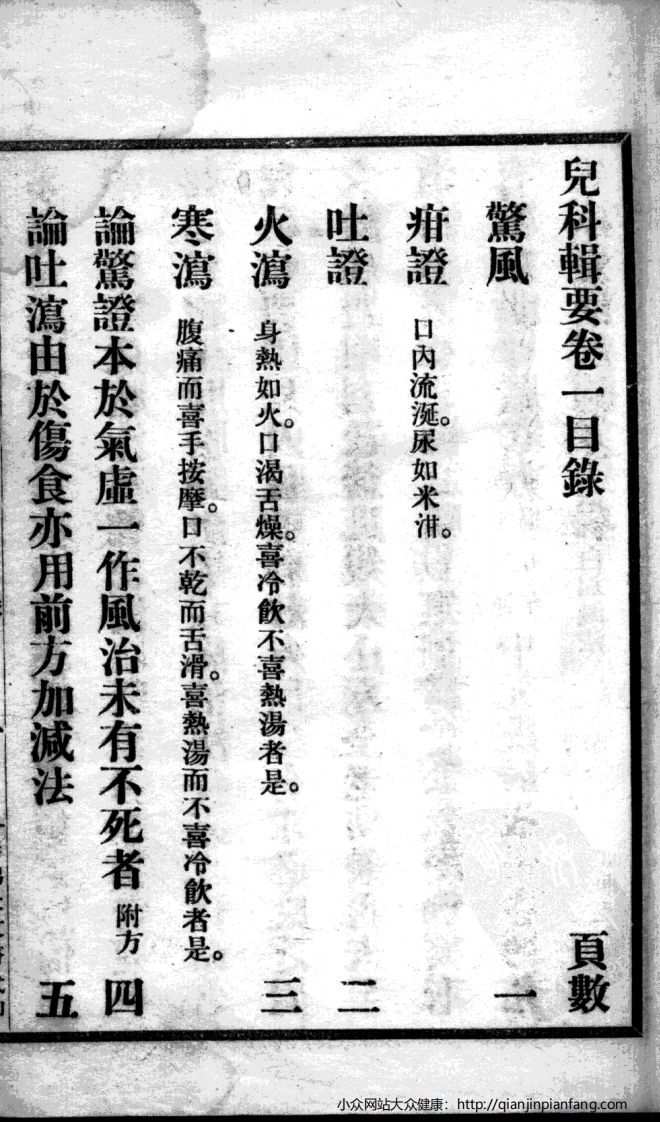 兒科輯要卷一目錄 頁數
驚風 一
疳證 口內流涎。尿如米泔。
吐證 二
火瀉 身熱如火。口渴舌燥。喜冷飲不喜熱湯者是。 三
寒瀉 腹痛而喜手按摩。口不乾而舌滑。喜熱湯而不喜冷飲者是。
論驚證本於氣虛一作風治未有不死者 附方 四
論吐瀉由於傷食亦用前方加減法 五
小众网站大众健康：http://qianjinpianfang.com